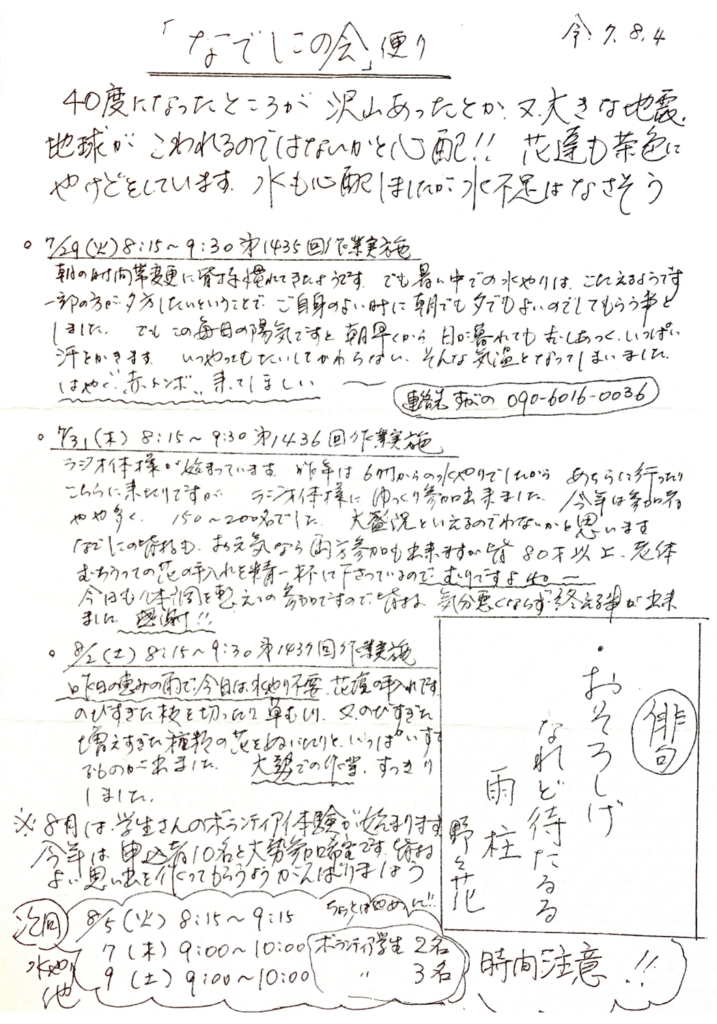 「なでしこの会」便り
令.7.8.4
40度になったところが 沢山あったとか、又、大きな地震、
地球が こわれるのではないかと心配!! 花達も茶色に
やけどをしています。水も心配しましたが、水不足はなさそう
○ 7/29(火) 8:15～9:30 第1435回作業実施
朝の時間帯変更に皆さん慣れてきたようです。でも暑い中での水やりは、こたえるようです
一部の方が夕方したいということで ご自身のよい時に朝でも夕でもよいのでしてもらう事と
しました。 でもこの毎日の陽気ですと朝早くから 日が暮れてもむしあつく、いっぱい
汗をかきます。 いつやってもたいしてかわらない、そんな気温となってしまいました。
はやく"赤トンボ"来てほしい ～
連絡先 すがの 090-6016-0036
○ 7/31(木) 8:15～9:30 第1436回作業実施
ラジオ体操が始まっています。昨年は6時からの水やりでしたから あちらに行ったり
こちらに来たりですが ラジオ体操に ゆっくり参加出来ました。 今年は参加者
やや多く、 150～200名でした。 大盛況といえるのでわないかと思います
なでしこの皆様も、お元気なら両方参加も出来ますが皆 80才以上、老体
むちうっての花の手入れを精一杯に下さっているので むりですよね～
今日も体調を整えての参加ですので、皆さん 気分悪くならず、終える事が出来
ました 感謝!!
○ 8/2(土) 8:15～9:30 第1437回作業実施
昨日の恵みの雨で、今日は水やり不要、花壇の手入れです。
のびすぎた枝を切ったり草むしり、又のびすぎた
増えすぎた種類の花をぬいたりと、いっぱいすて
るものが出来ました。 大勢での作業、すっきり
しました。
俳句
・おそろしげ
なれど待たるる
雨柱
野々花
※ 8月は、学生さんのボランティア体験が始まります
今年は 申込者10名と大勢参加予定です。皆さん
よい思い出を作ってもらうようがんばりましょう
次回
水やり
他
8/5(火) 8:15～9:15
ちょっとはやめに!!
7(木) 9:00～10:00 ボランティア学生 2名
9(土) 9:00～10:00 〃 3名
時間注意!!